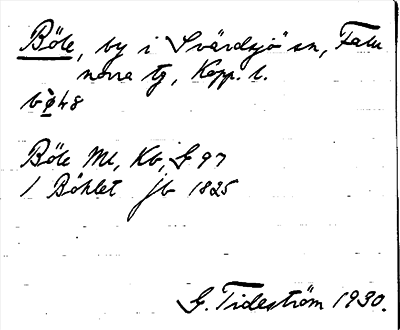 Böle, by i Svärdsjö sn, Falu
norra tg, Kopp. l.
Böle Ml, Kb, G 97
/ Böhlet jb 1825
G. Tideström 1930.